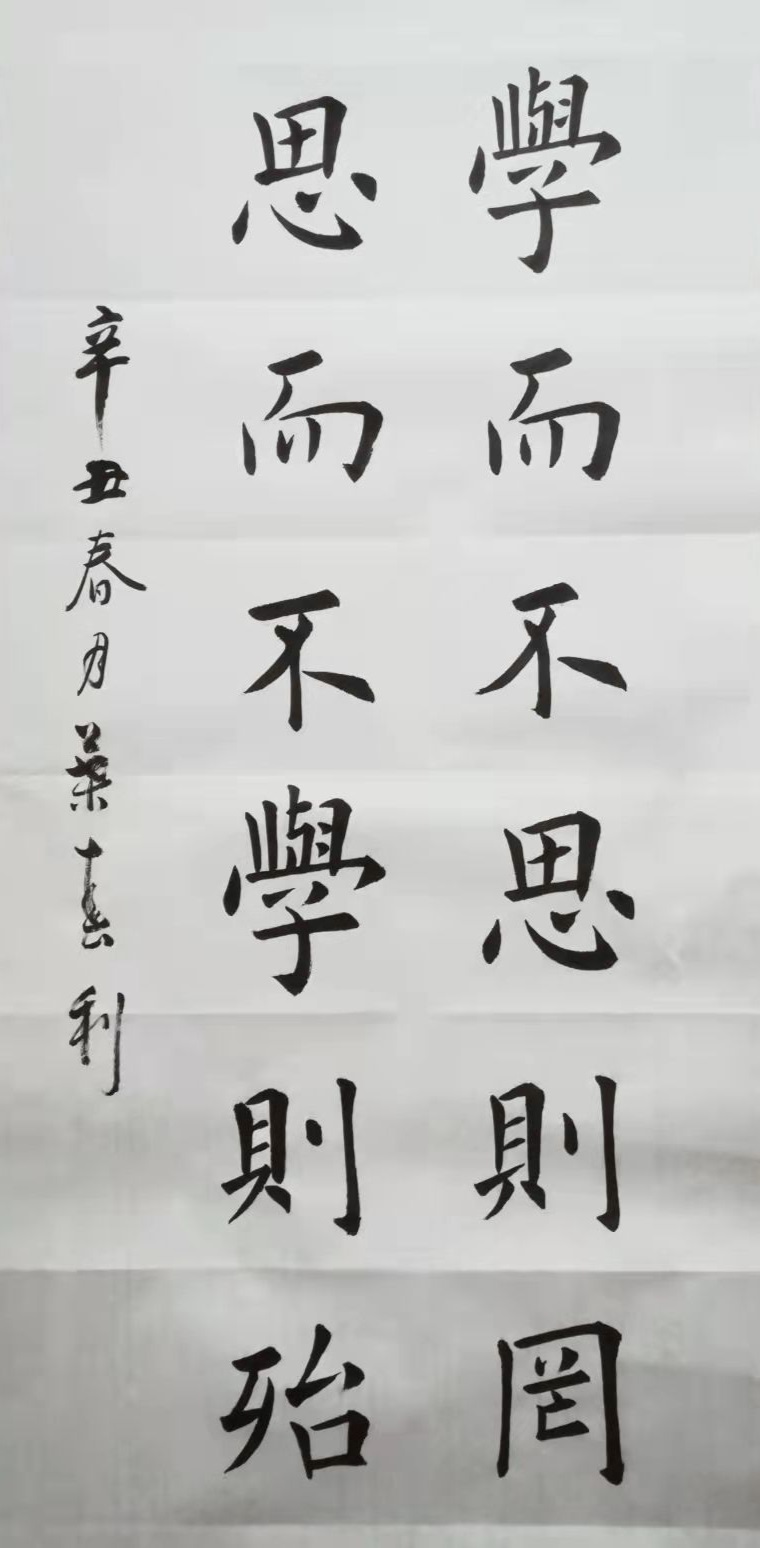 學而不思則罔
思而不學則殆
辛丑春月葉喜利